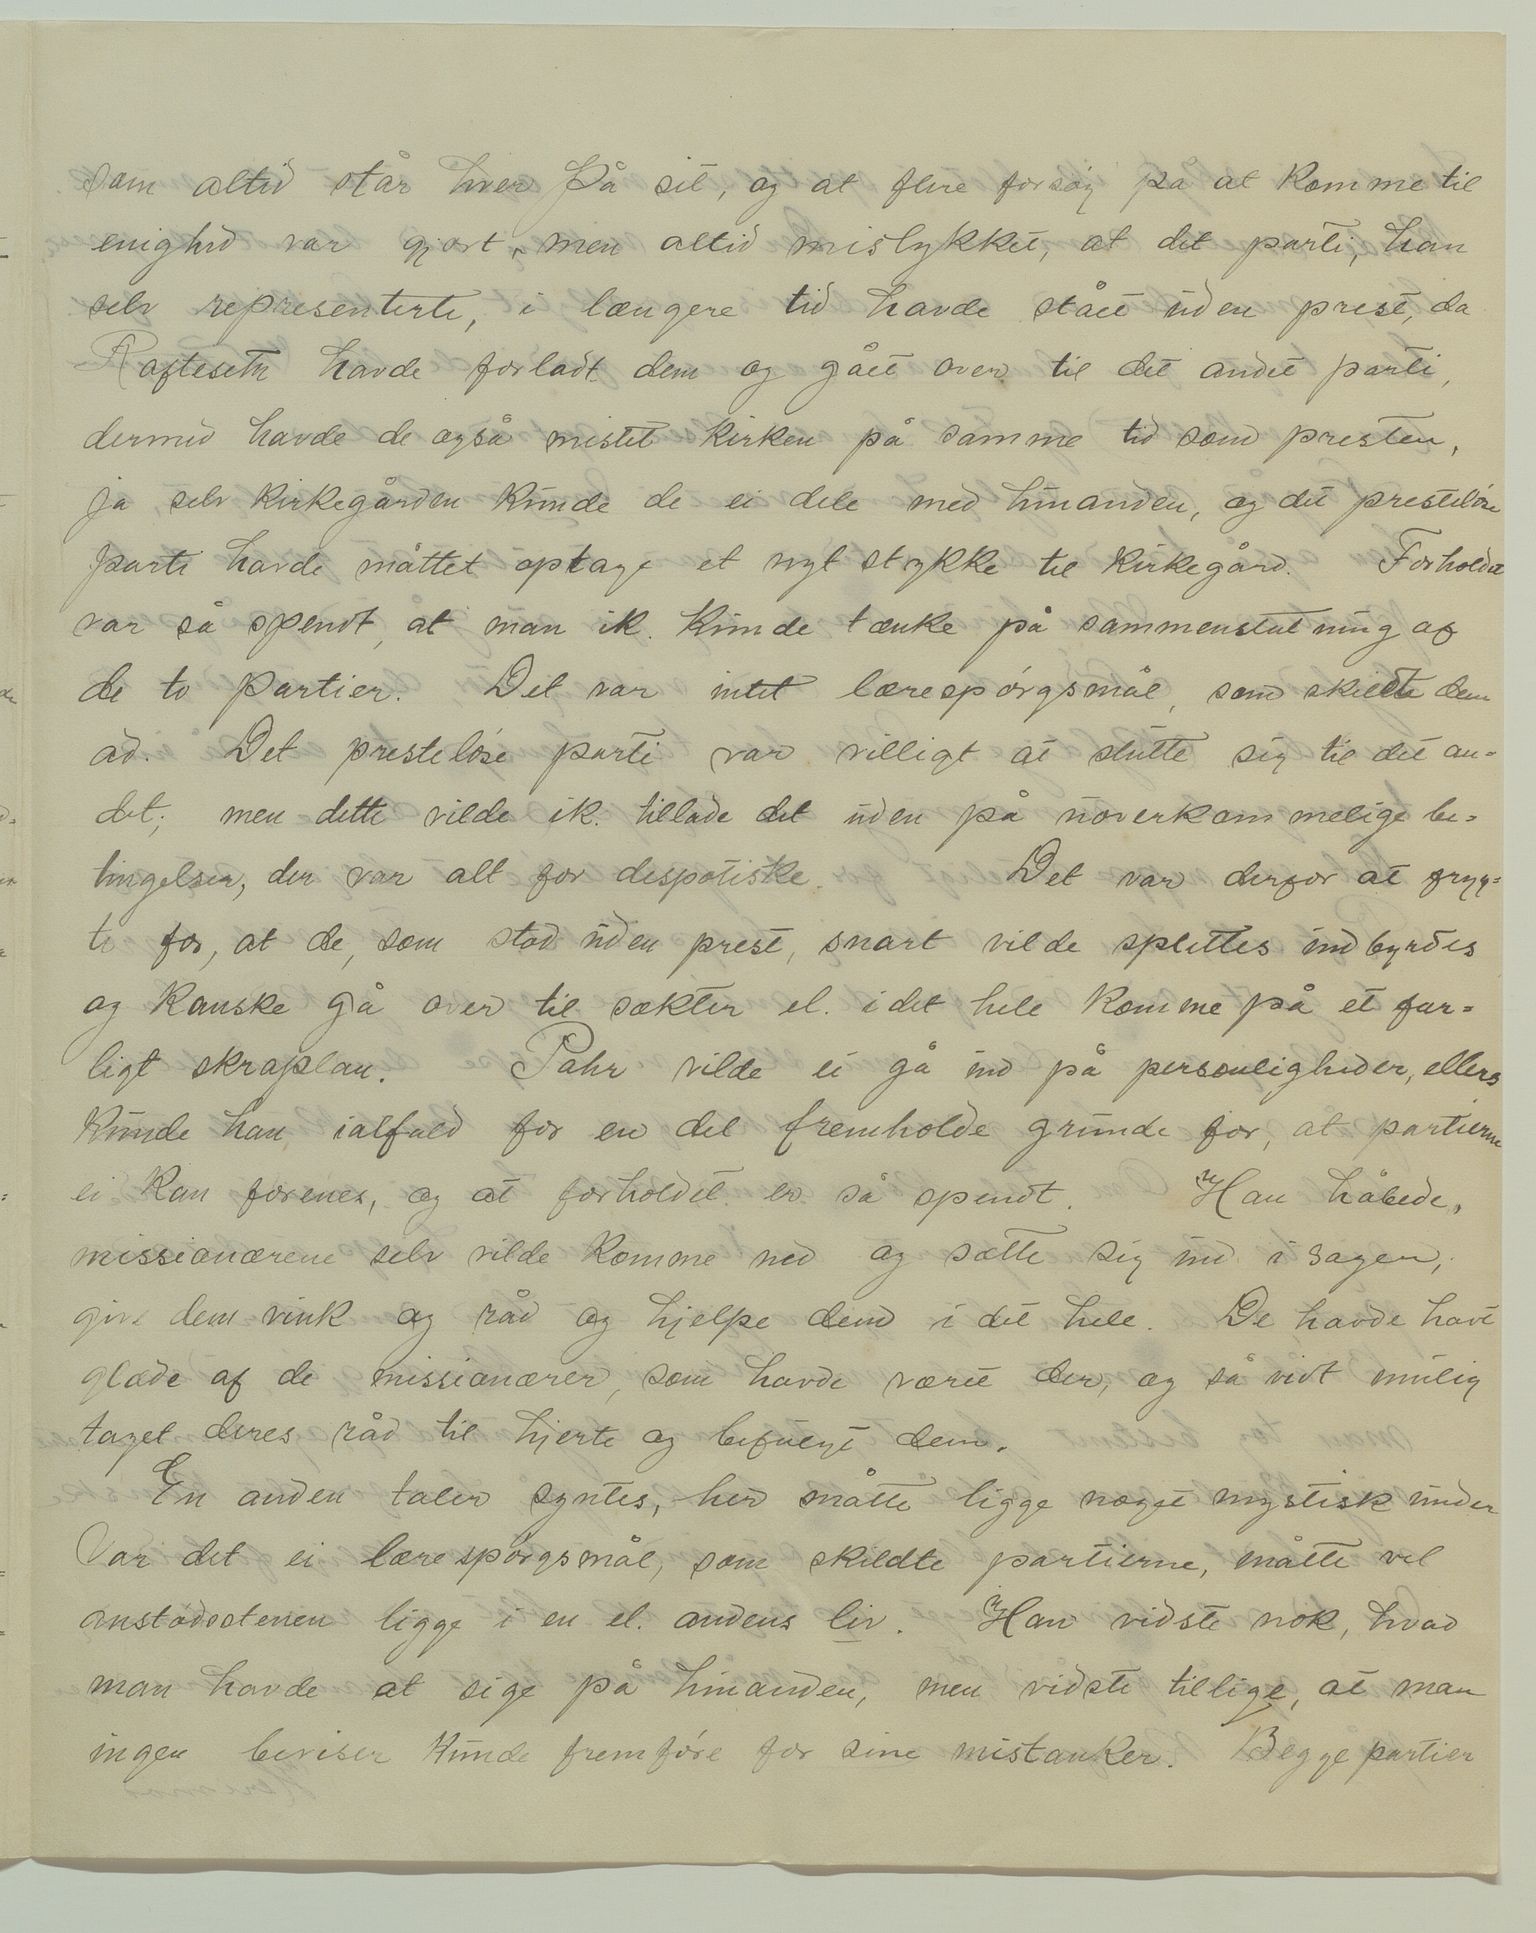 som altid står hver på sit, og at flere forsøg på at komme til
enighed var gjort, men altid mislykket, at det parti, han
selv representerte, i længere tid havde stået uden prest, da
Rafteseth havde forladt dem og gået over til det andet parti,
dermed havde de også mistet kirken på samme tid som presten,
ja selv kirkegården kunde de ei dele med hinanden, og det presteløse
parti havde måttet optage et nyt stykke til kirkegård. Forholdet
var så spendt, at man ik. kunde tænke på sammenslutning af
de to partier. Det var intet lærespørgsmål, som skillte dem
ad. Det presteløse parti var villigt at slutte sig til det an-
det; men dette vilde ik. tillade det uden på uoverkommelige be-
tingelser, der var alt for despotiske. Det var derfor at fryg-
te for, at de, som stod uden prest, snart vilde splittes indbyrdes
og kanske gå over til sækter el. i det hele komme på et far-
ligt skraplan. Pahr vilde ei gå ind på personligheder, ellers
kunde han ialfald for en del fremholde grunde for, at partierne
ei kan forenes, og at forholdet er så spendt. Han håbede,
missionærene selv vilde komme ned og sætte sig ind i sagen,
give dem vink og råd og hjelpe dem i det hele. De havde havt
glæde af de missionærer, som havde været der, og så vidt mulig
taget deres råd til hjerte og befulgt dem.
En anden taler syntes, her måtte ligge noget mystisk under
Var det ei lærespørgsmål, som skildte partierne, måtte vel
anstødsstenen ligge i en el. andens liv. Han vidste nok, hvad
man havde at sige på hinanden, men vidste tillige, at man
ingen beviser kunde fremføre for sine mistanker. Begge partier